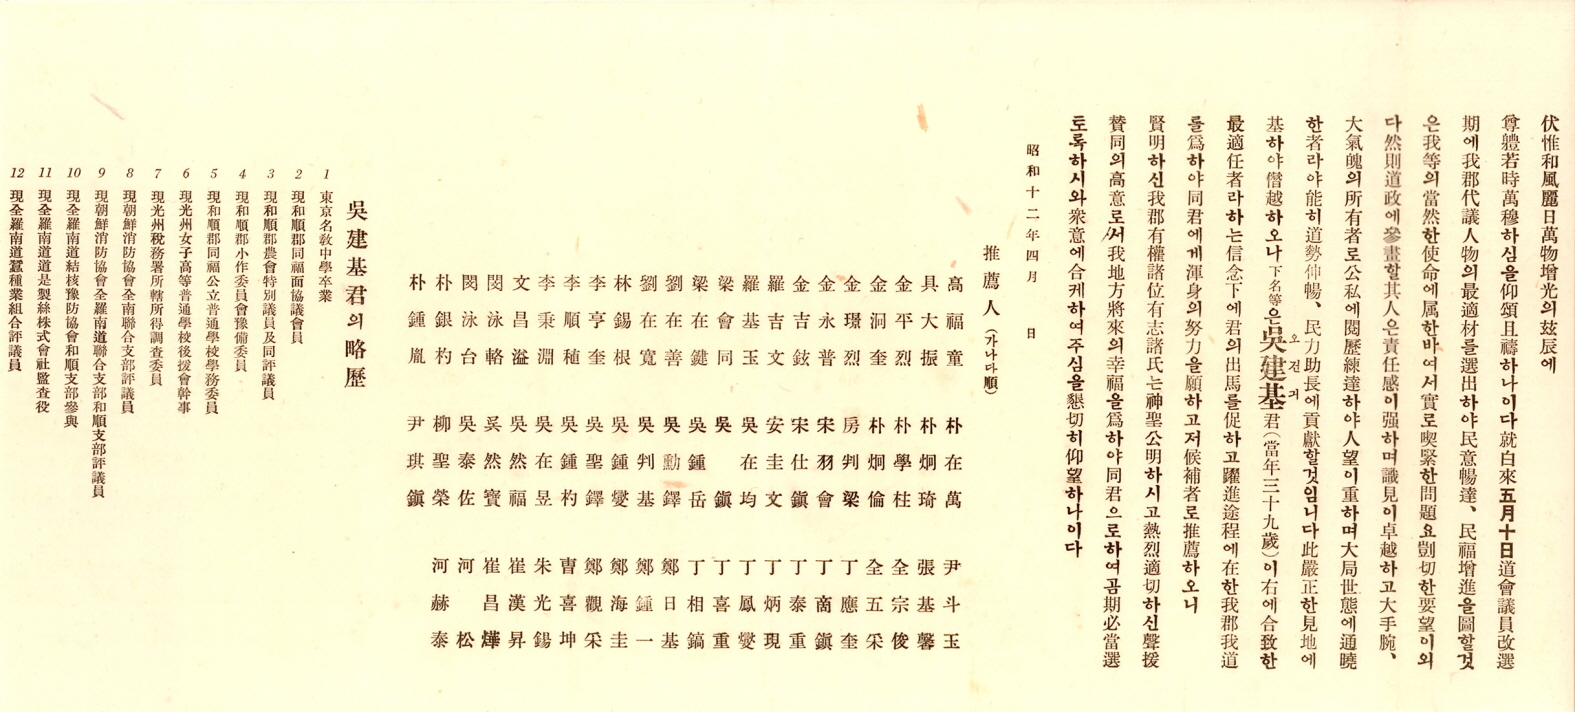 伏惟和風麗日萬物增光의玆辰에
尊軆若時萬穆하심을仰頌且禱하나이다就白來五月十日道會議員改選
期에我郡代議人物의最適材를選出하야民意暢達、民福增進을圖할것
은我等의當然한使命에属한바여서實로喫緊한問題요剴切한要望이외
다然則道政에參畫할其人은責任感이强하며識見이卓越하고大手腕、
大氣魄의所有者로公私에閱歷練達하야人望이重하며大局世態에通曉
한者라야能히道勢伸暢、民力助長에貢獻할것임니다此嚴正한見地에
基하야僭越하오나下名等은吳建基君(當年三十九歲)이右에合致한
오건기
最適任者라하는信念下에君의出馬를促하고躍進途程에在한我郡我道
를爲하야同君에게渾身의努力을願하고저候補者로推薦하오니
賢明하신我郡有權諸位有志諸氏는神聖公明하시고熱烈適切하신聲援
贊同의高意로써我地方將來의幸福을爲하야同君으로하여곰期必當選
토록하시와衆意에合케하여주심을懇切히仰望하나이다
昭和十二年四月 日
推薦人(가나다順)
高福童 朴在萬 尹斗玉
具大振 朴炯琦 張基馨
金平烈 朴學柱 全宗俊
金洞奎 朴炯倫 全五采
金璟烈 房判梁 丁應奎
金永普 宋羽會 丁商鎭
金吉鉉 宋仕鎭 丁泰重
羅吉文 安圭文 丁炳現
羅基玉 吳在均 丁鳳燮
梁會同 吳鎭 丁喜重
梁在鍵 吳鍾岳 丁相鎬
劉在善 吳勳鐸 鄭日基
劉在寬 吳判基 鄭鍾一
林錫根 吳鍾燮 鄭海圭
李亨奎 吳聖鐸 鄭觀采
李順稙 吳鍾杓 曺喜坤
李秉淵 吳在昱 朱光錫
文昌溢 吳然福 崔漢昇
閔泳輅 吳然寶 崔昌燁
閔泳台 吳泰佐 河松
朴銀杓 柳聖榮 河赫泰
朴鍾胤 尹琪鎭
吳建基君의略歷
1 東京名敎中學卒業
2 現和順郡同福面協議會員
3 現和順郡農會特別議員及同評議員
4 現和順郡小作委員會豫備委員
5 現和順郡同福公立普通學校學務委員
6 現光州女子高等普通學校後援會幹事
7 現光州稅務署所轄所得調査委員
8 現朝鮮消防協會全南聯合支部評議員
9 現朝鮮消防協會全羅南道聯合支部和順支部評議員
10 現全羅南道結核豫防協會和順支部參與
11 現全羅南道道是製絲株式會社監査役
12 現全羅南道蠶種業組合評議員